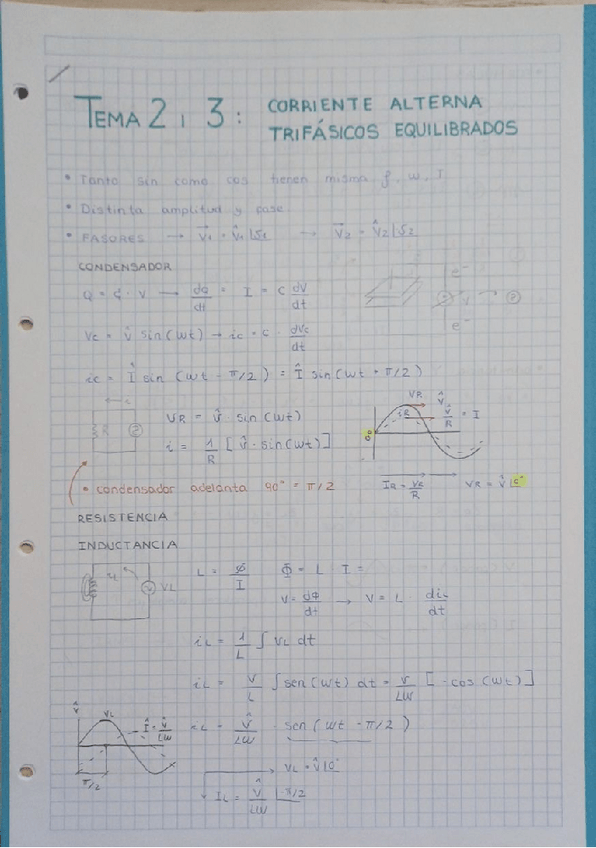 TEMA 2 i 3: CORRIENTE ALTERNA
TRIFÁSICOS EQUILIBRADOS
• Tanto sin como cos tienen misma f, w, T
• Distinta amplitud y fase
• FASORES → V⃗₁ = V̂₁|δ₁ → V⃗₂ = V̂₂|δ₂
CONDENSADOR
Q = C · V → dQ/dt = I = C dV/dt
e⁻
e⁻
Vc = V̂ sin(wt) → ic = C · dVc/dt
ic = Î sin (wt - π/2) = Î sin (wt + π/2)
R
VR = V̂ · sin(wt)
i = 1/R [V̂ · sin(wt)]
VR V̂
iR V̂/R = I
0°
• condensador adelanta 90° = π/2
IR = VR/R VR = V̂|0°
RESISTENCIA
INDUCTANCIA
VL
L = Φ/I Φ = L · I =
V = dΦ/dt → V = L · diL/dt
iL = 1/L ∫ VL dt
iL = V/L ∫ sen(wt) dt = V/LW [-cos(wt)]
V̂ VL Î = V̂/LW
π/2
iL = V̂/LW · sen(wt - π/2)
VL = V̂|0°
IL = V̂/LW |-π/2